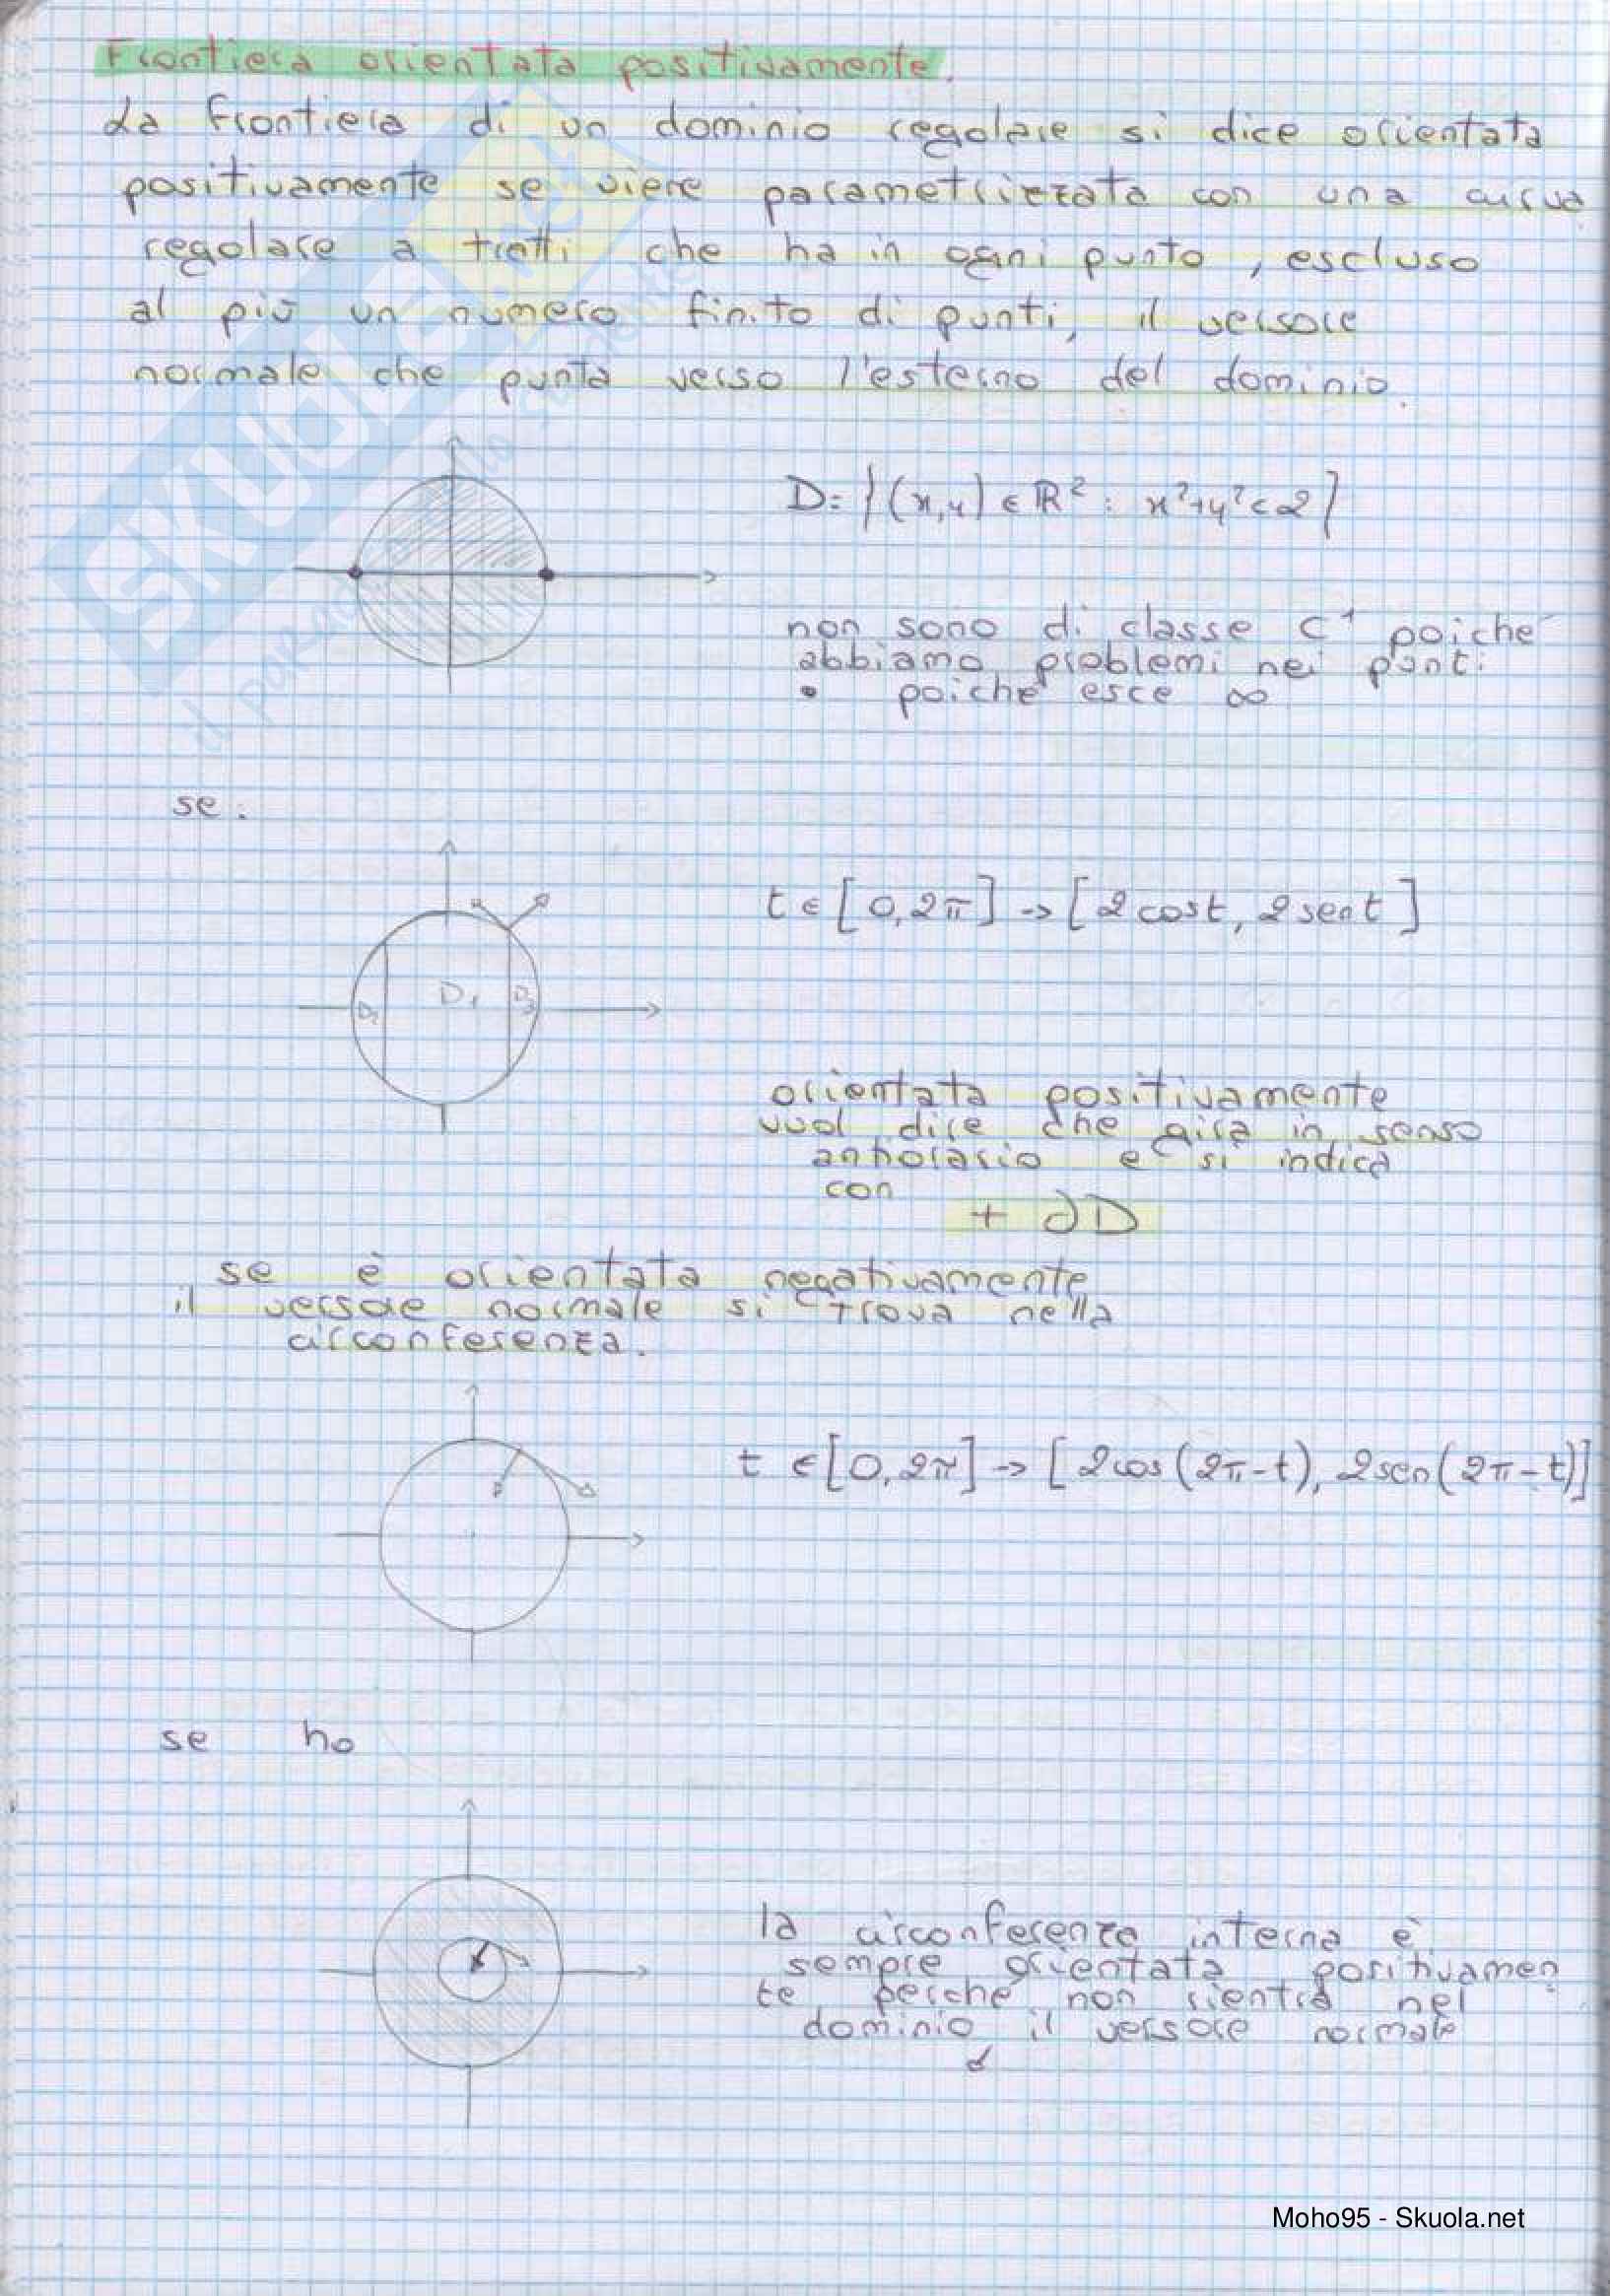 Frontiera orientata positivamente.
La frontiera di un dominio regolare si dice orientata
positivamente se viene parametrizzata con una curva
regolare a tratti che ha in ogni punto, escluso
al più un numero finito di punti, il versore
normale che punta verso l'esterno del dominio.
D= {(x,y) ∈ ℝ² : x²+y²<2}
non sono di classe C¹ poiche
abbiamo problemi nei punti
• poiche esce ∞
se:
t ∈ [0,2π] -> [2cost, 2sent]
D₂ D₁ D₃
orientata positivamente
vuol dire che gira in senso
antiorario e si indica
con
+ ∂D
se è orientata negativamente
il versore normale si trova nella
circonferenza.
t ∈ [0,2π] -> [2cos(2π-t), 2sen(2π-t)]
se ho
la circonferenza interna è
sempre orientata positivamen
te perche non rientra nel
dominio il versore normale
SKUOLA.net
Moho95 - Skuola.net